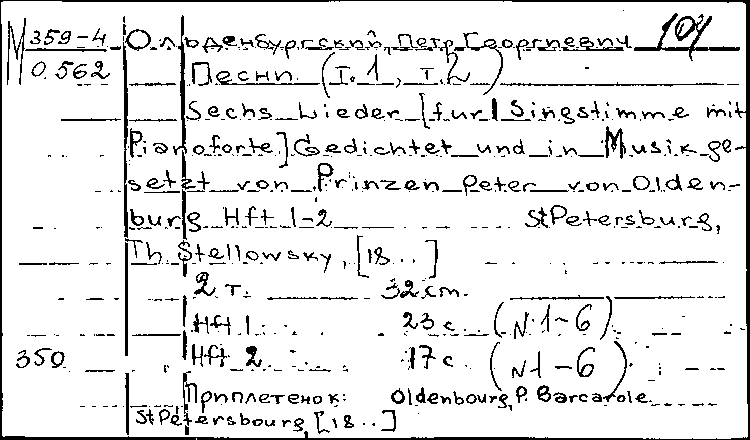 М 359-4 Ольденбургский, Петр Георгиевич 104
О.562 Песни (т.1, т.2)
Sechs Lieder [fur 1 Singstimme mit
Pianoforte] Gedichtet und in Musik ge-
setzt von Prinzen Peter von Olden-
burg Hft 1-2 St Petersburg,
Th. Stellowsky, [18..]
2 т. 32 cm.
Hft 1. 23 c. (N 1-6)
350 Hft 2 17 c (N 1-6)
Приплетенок: Oldenbourg, P. Barcarole
St Petersbourg, [18..]